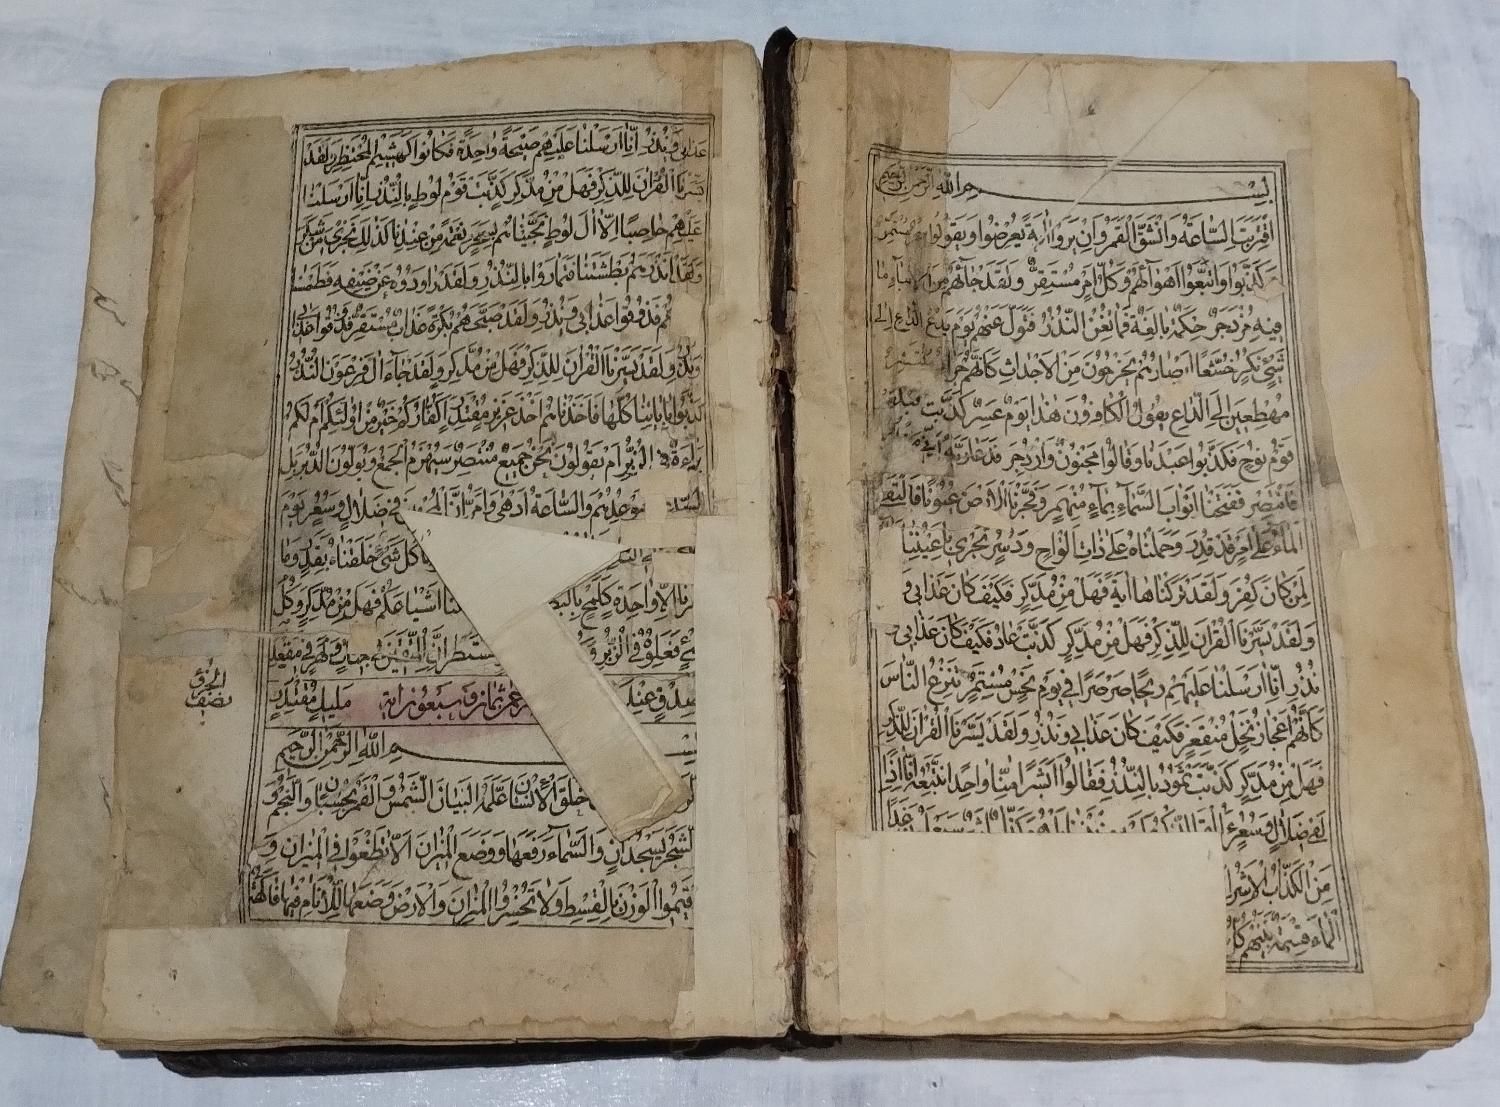 بسم الله الرحمن الرحيم
اقتربت الساعة وانشق القمر وان يروا اية يعرضوا ويقولوا سحر مستمر
وكذبوا واتبعوا اهواءهم وكل امر مستقر ولقد جاءهم من الانباء ما
فيه مزدجر حكمة بالغة فما تغن النذر فتول عنهم يوم يدع الداع الى
شئ نكر خشعا ابصارهم يخرجون من الاجداث كانهم جراد منتشر
مهطعين الى الداع يقول الكافرون هذا يوم عسر كذبت قبلهم
قوم نوح فكذبوا عبدنا وقالوا مجنون وازدجر فدعا ربه انى
فانتصر ففتحنا ابواب السماء بماء منهمر وفجرنا الارض عيونا فالتقى
الماء على امر قد قدر وحملناه على ذات الواح ودسر تجرى باعيننا
لمن كان كفر ولقد تركناها اية فهل من مدكر فكيف كان عذابى و
ولقد يسرنا القران للذكر فهل من مدكر كذبت عاد فكيف كان عذابى و
نذر انا ارسلنا عليهم ريحا صرصرا فى يوم نحس مستمر تنزع الناس
كانهم اعجاز نخل منقعر فكيف كان عذابى ونذر ولقد يسرنا القران للذكر
فهل من مدكر كذبت ثمود بالنذر فقالوا ابشرا منا واحدا نتبعه انا اذا
لفى ضلال وسعر غدا
من الكذاب الاشر انا
الماء قسمة بينهم كل
عذابى ونذر انا ارسلنا عليهم صيحة واحدة فكانوا كهشيم المحتظر ولقد
يسرنا القران للذكر فهل من مدكر كذبت قوم لوط بالنذر انا ارسلنا
عليهم حاصبا الا ال لوط نجيناهم بسحر نعمة من عندنا كذلك نجزى من شكر
ولقد انذرهم بطشتنا فتماروا بالنذر ولقد راودوه عن ضيفه فطمسنا
فذوقوا عذابى ونذر ولقد صبحهم بكرة عذاب مستقر فذوقوا عذابى
ونذر ولقد يسرنا القران للذكر فهل من مدكر ولقد جاء ال فرعون النذر
كذبوا باياتنا كلها فاخذناهم اخذ عزيز مقتدر اكفاركم خير من اولئكم ام لكم
براءة فى الزبر ام يقولون نحن جميع منتصر سيهزم الجمع ويولون الدبر بل
الساعة موعدهم والساعة ادهى وامر ان المجرمين فى ضلال وسعر يوم
كل شئ خلقناه بقدر وما
امرنا الا واحدة كلمح بالبصر اشياعكم فهل من مدكر وكل
شئ فعلوه فى الزبر مستطر ان المتقين فى جنات ونهر فى مقعد
صدق عند مليك مقتدر سورة الرحمن ثمان وسبعون اية
بسم الله الرحمن الرحيم
خلق الانسان علمه البيان الشمس والقمر بحسبان والنجم و
الشجر يسجدان والسماء رفعها ووضع الميزان الا تطغوا فى الميزان و
اقيموا الوزن بالقسط ولا تخسروا الميزان والارض وضعها للانام فيها فاكهة
الحزب
نصف